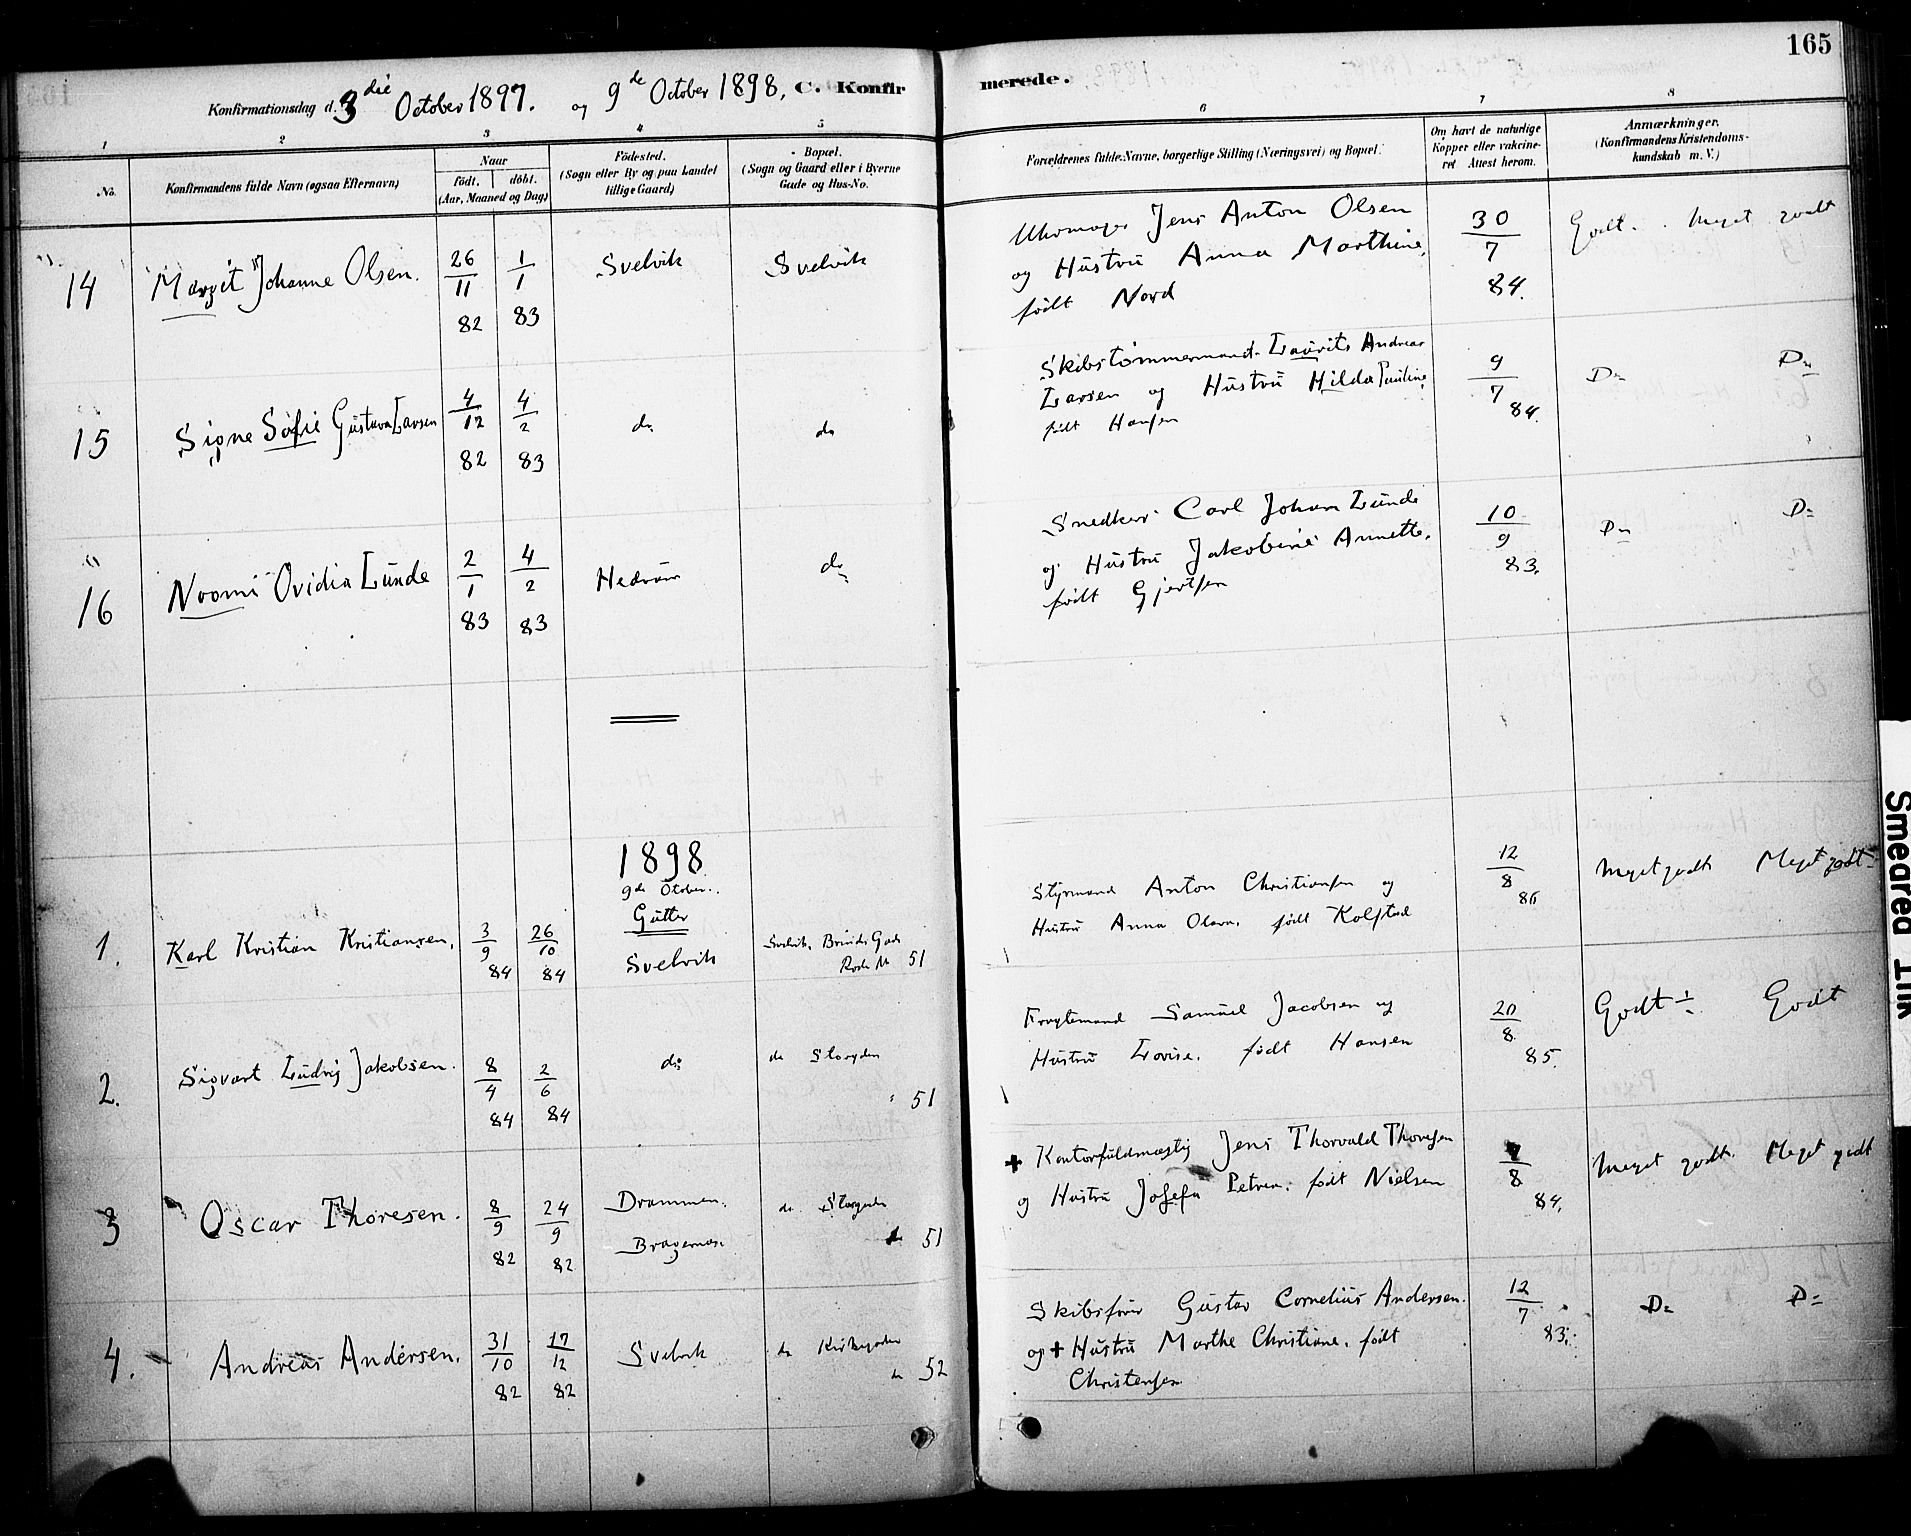 165
Konfirmationsdag d. 3die October 1897. og 9de October 1898. C. Konfirmerede.
1 2 3 4 5 6 7 8
No. Konfirmandens fulde Navn (ogsaa Efternavn)
Naar
födt. döbt.
(Aar, Maaned og Dag)
Födested.
(Sogn eller By og paa Landet
tillige Gaard)
Bopæl.
(Sogn og Gaard eller i Byerne
Gade og Hus-No.
Forældrenes fulde Navne, borgerlige Stilling (Næringsvei) og Bopæl.
Om havt de naturlige
Kopper eller vakcine-
ret Attest herom.
Anmærkninger.
(Konfirmandens Kristendoms-
kundskab m. V.)
14 Margit Johanne Olsen. 26/11 82 1/1 83 Svelvik Svelvik
Jens Anton Olsen
og Hustru Anna Marthine,
født Nord
30/7 84. Godt. Meget godt
15 Signe Sofie Gustava Larsen 4/12 82 4/2 83 do do
Skibstømmermand Laurits Andreas
Larsen og Hustru Hilda Pauline
født Hansen
9/7 84. Do Do
16 Noomi Ovidia Lunde 2/1 83 4/2 83 Hedrum do
Snedker Carl Johan Lunde
og Hustru Jakobine Annette,
født Gjertsen
10/9 83. Do Do
1898
9de October.
Gutter
1. Karl Kristian Kristiansen, 3/9 84 26/10 84 Svelvik Svelvik, Gade
Rode No 51
Styrmand Anton Christiansen og
Hustru Anna Olava, født Kolstad
12/8 86 Meget godt Meget godt
2. Sigvart Ludvig Jakobsen. 8/4 84 2/6 84 do do Storgaden
" 51
Samuel Jacobsen og
Hustru Lovise, født Hansen
20/8 85. Godt ÷ Godt
3 Oscar Thoresen. 8/9 82 24/9 82 Drammen.
Bragernæs
do Storgaden
do 51
+ Kontorfuldmægtig Jens Thorvald Thoresen
og Hustru Josefa Petrea, født Nielsen
7/8 84. Meget godt. Meget godt
4. Andreas Andersen, 31/10 82 17/12 82 Svelvik do Kirkegaden
do 52
Skibsfører Gustav Cornelius Andersen.
og + Hustru Marthe Christiane, født
Christensen
12/7 83. Do Do
Smeared Ink